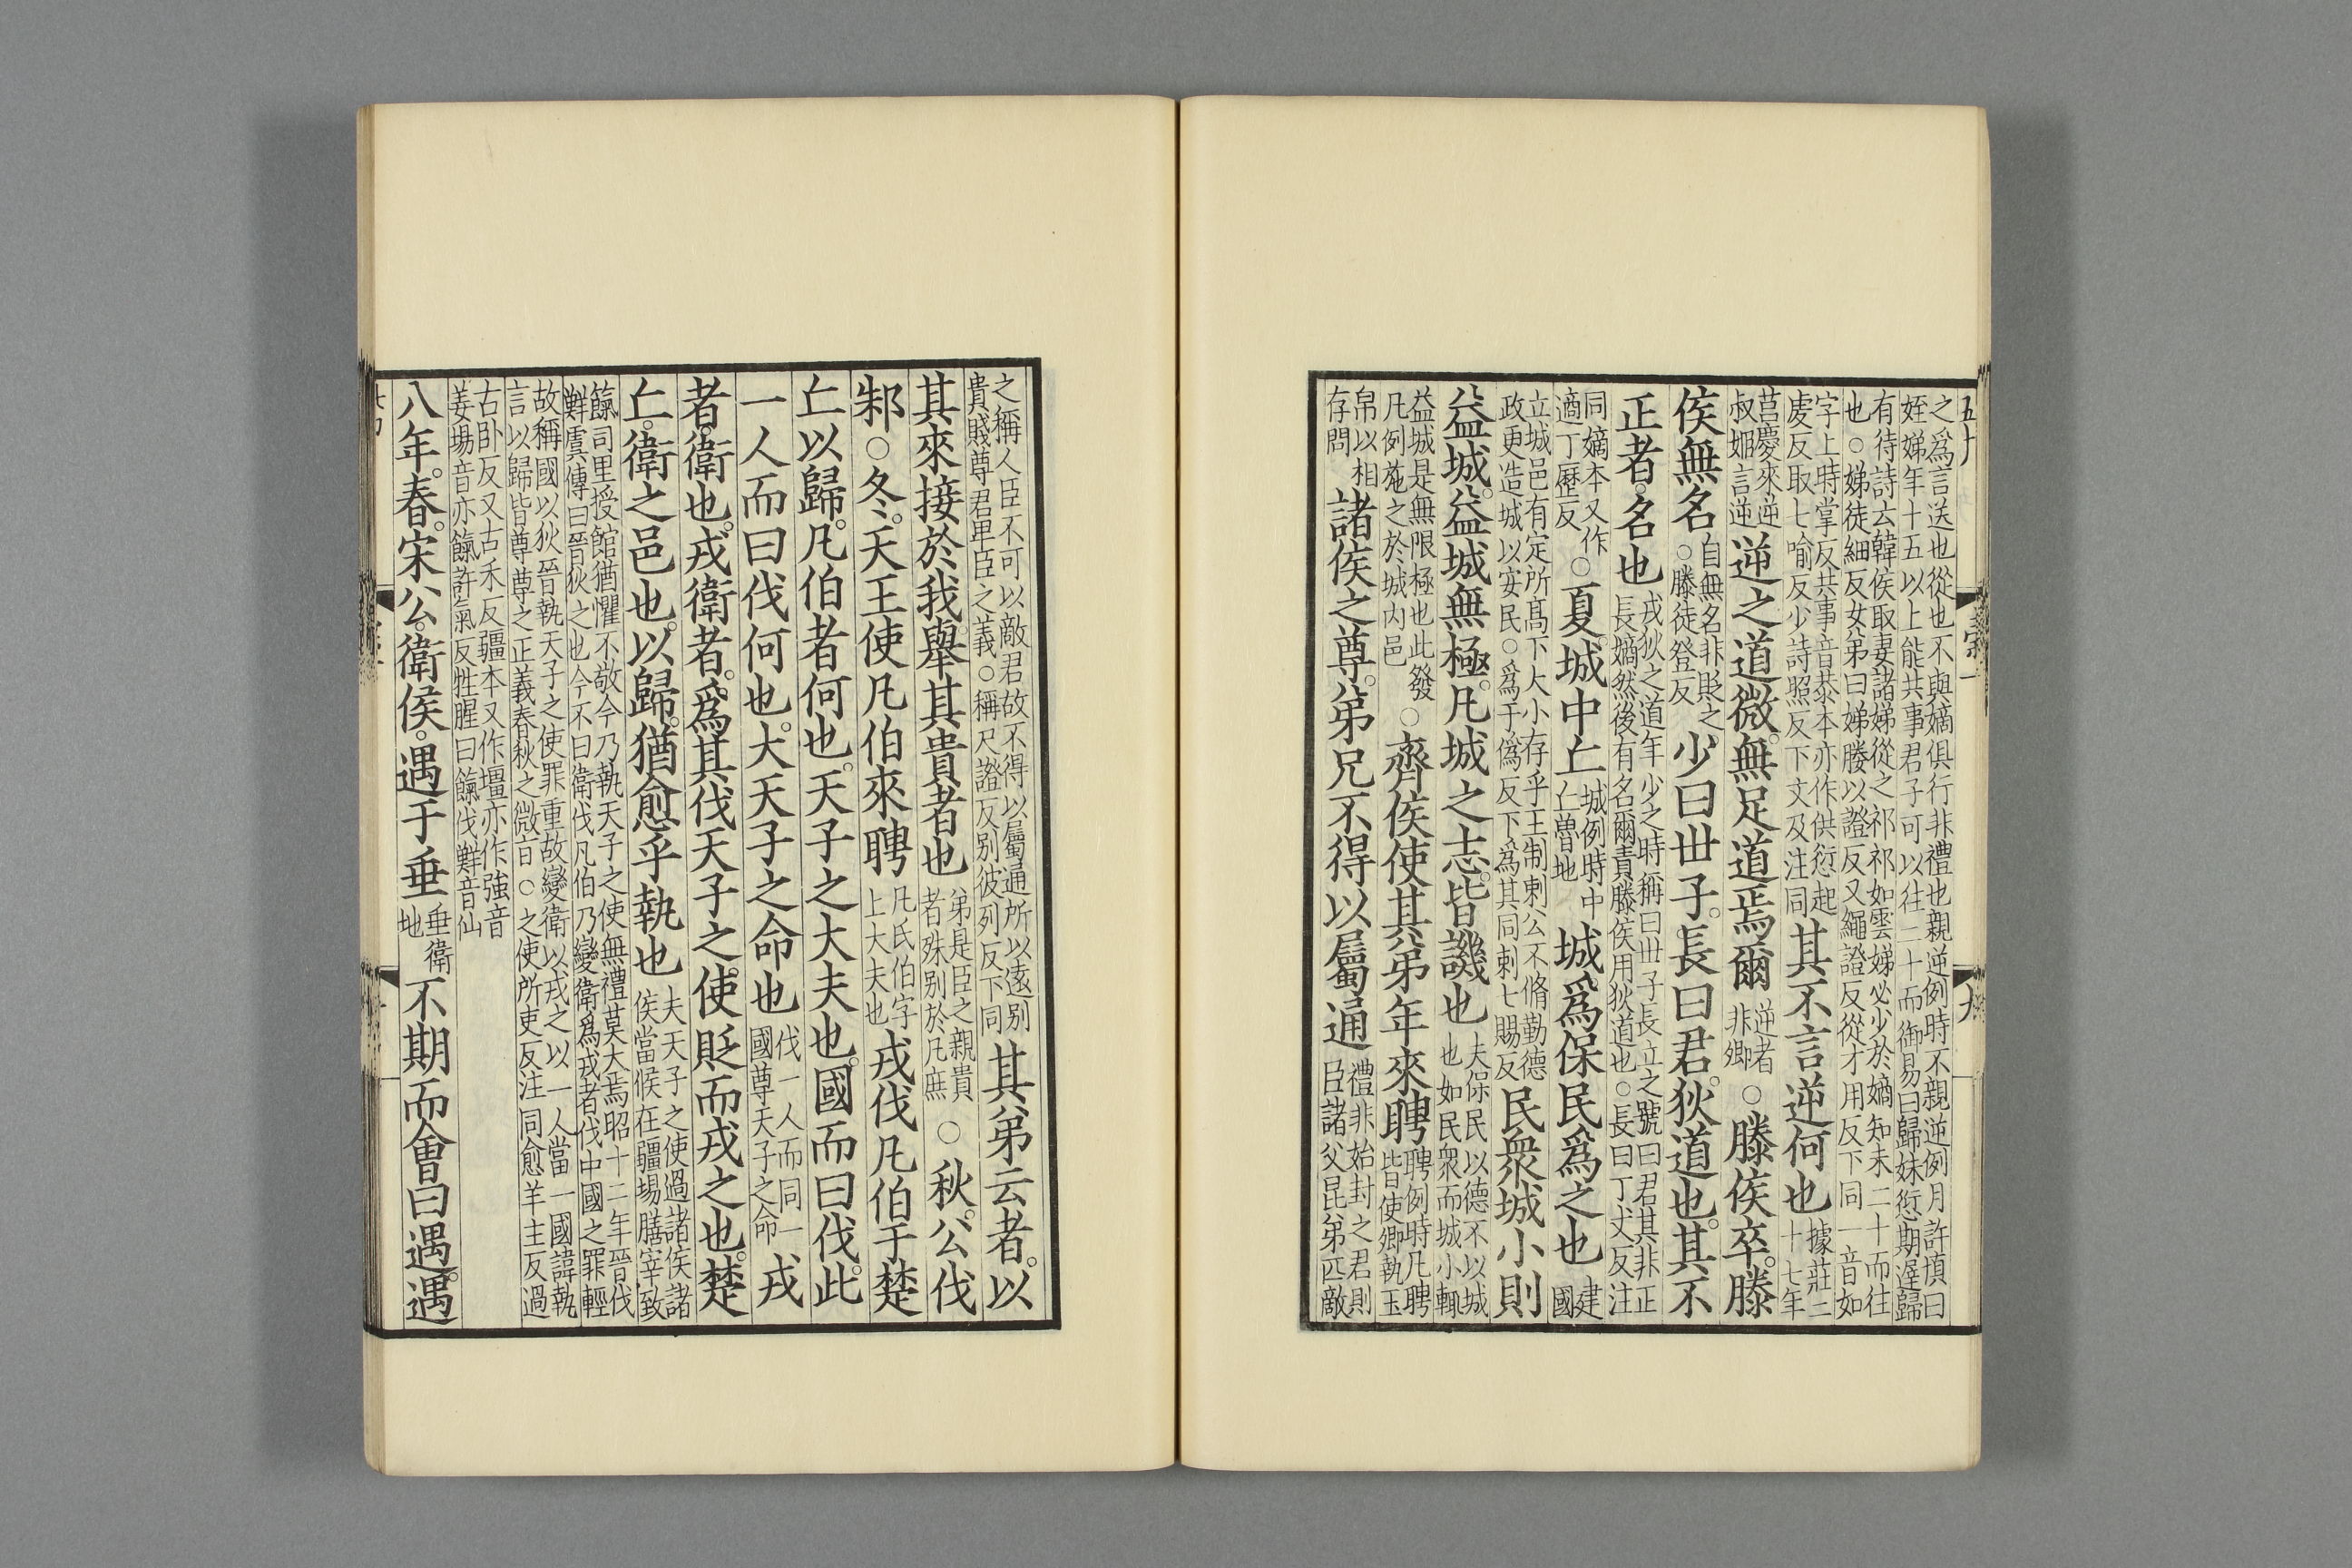 之爲言送也從也不與嫡俱行非禮也親逆例時不親逆例月許愼曰
姪娣年十五以上能共事君子可以往二十而御易曰歸妹愆期遅歸
有待詩云韓侯取妻諸娣從之祁祁如雲娣必少於嫡知未二十而往
也○娣徒細反女弟曰娣媵以證反又繩證反從才用反下同一音如
字上時掌反共事音恭本亦作供愆起虔反取七喻反少詩照反下文及注同其不言逆何也據莊二十七年
莒慶來逆叔姬言逆逆之道微。無足道焉爾逆者非卿○滕侯卒。滕
侯無名自無名非貶之○滕徒登反少曰丗子。長曰君。狄道也。其不
正者。名也戎狄之道年少之時稱曰丗子長立之號曰君其非正長嫡然後有名爾責滕侯用狄道也○長曰丁丈反注
同嫡本又作適丁歷反○夏。城中丘城例時中丘魯地城爲保民爲之也建國
立城邑有定所髙下大小存乎王制刺公不脩勤德政更造城以安民○爲于僞反下爲其同刺七賜反民衆城小則
益城。益城無極。凡城之志。皆譏也夫保民以德不以城也如民衆而城小輒
益城是無限極也此發凡例施之於城内邑○齊侯使其弟年來聘聘例時凡聘皆使卿執玉
帛以相存問諸侯之尊。弟兄不得以屬通禮非始封之君則臣諸父昆弟匹敵
之稱人臣不可以敵君故不得以屬通所以遠别貴賤尊君卑臣之義○稱尺證反别彼列反下同其弟云者。以
其來接於我。舉其貴者也弟是臣之親貴者殊别於凡庶○秋。公伐
邾○冬。天王使凡伯來聘凡氏伯字上大夫也戎伐凡伯于楚
丘以歸。凡伯者何也。天子之大夫也。國而曰伐。此
一人而曰伐何也。大天子之命也伐一人而同一國尊天子之命戎
者。衛也。戎衛者。爲其伐天子之使。貶而戎之也。楚
丘。衛之邑也。以歸。猶愈乎執也夫天子之使過諸侯諸侯當候在疆埸膳宰致
餼司里授館猶懼不敬今乃執天子之使無禮莫大焉昭十二年晉伐鮮虞傳曰晉狄之也今不曰衛伐凡伯乃變衛爲戎者伐中國之罪輕
故稱國以狄晉執天子之使罪重故變衛以戎之以一人當一國諱執言以歸皆尊尊之正義春秋之微旨○之使所吏反注同愈羊主反過
古卧反又古禾反疆本又作壃亦作強音姜埸音亦餼許氣反牲腥曰餼伐鮮音仙
八年。春。宋公。衛侯。遇于垂垂衛地不期而會曰遇。遇